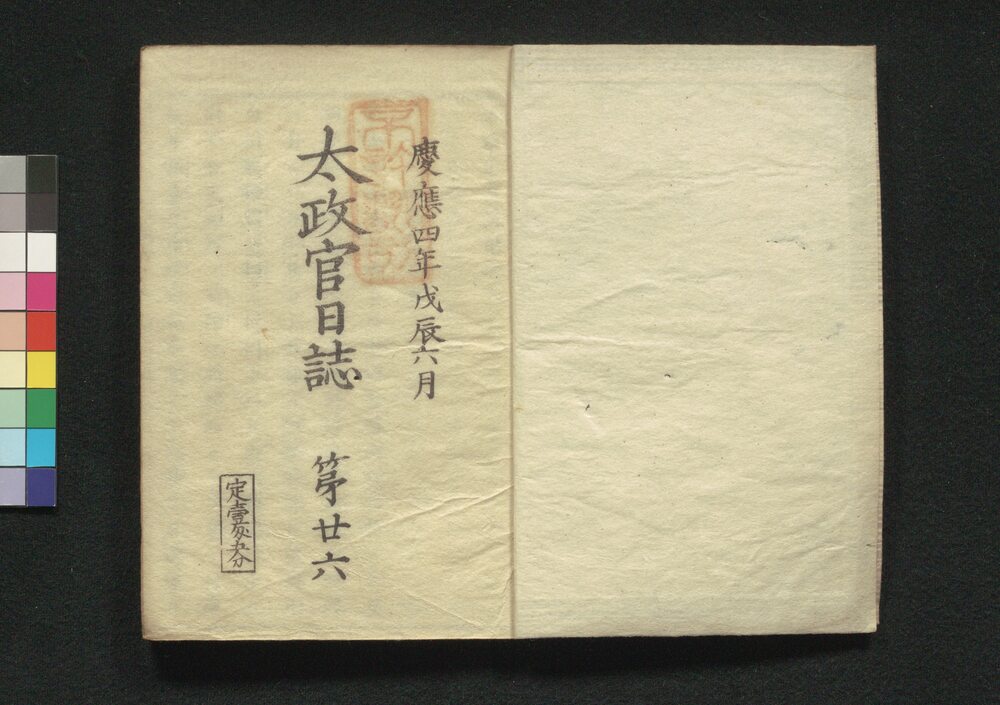 慶應四年戊辰六月
太政官日誌 第廿六
定壹匁五分